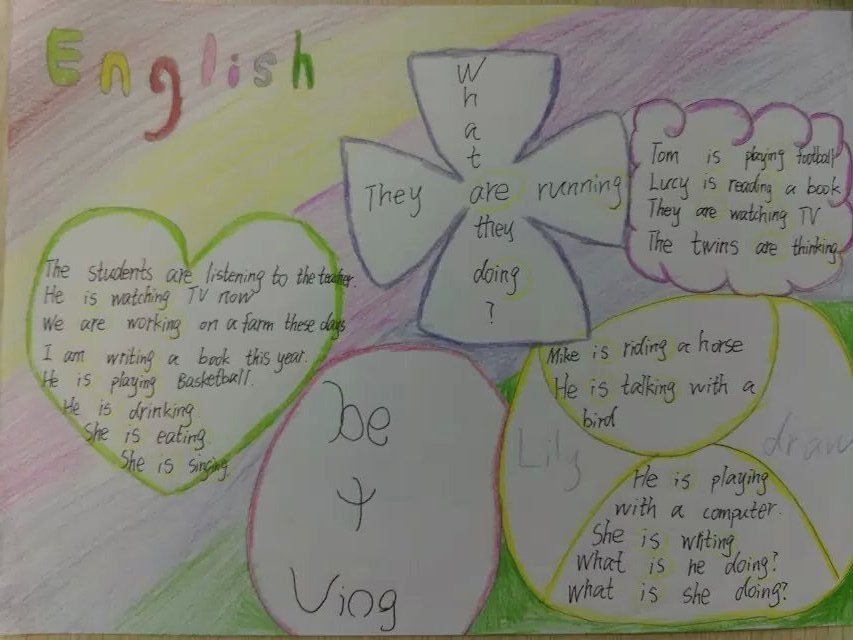 English
What
They are running
they
doing
?
Tom is playing football
Lucy is reading a book
They are watching TV
The twins are thinking
The students are listening to the teacher.
He is watching TV now
We are working on a farm these days
I am writing a book this year.
He is playing Basketball.
He is drinking.
She is eating.
She is singing.
be
+
Ving
Mike is riding a horse
He is talking with a
bird
Lily draw
He is playing
with a computer.
She is writing
What is he doing?
what is she doing?